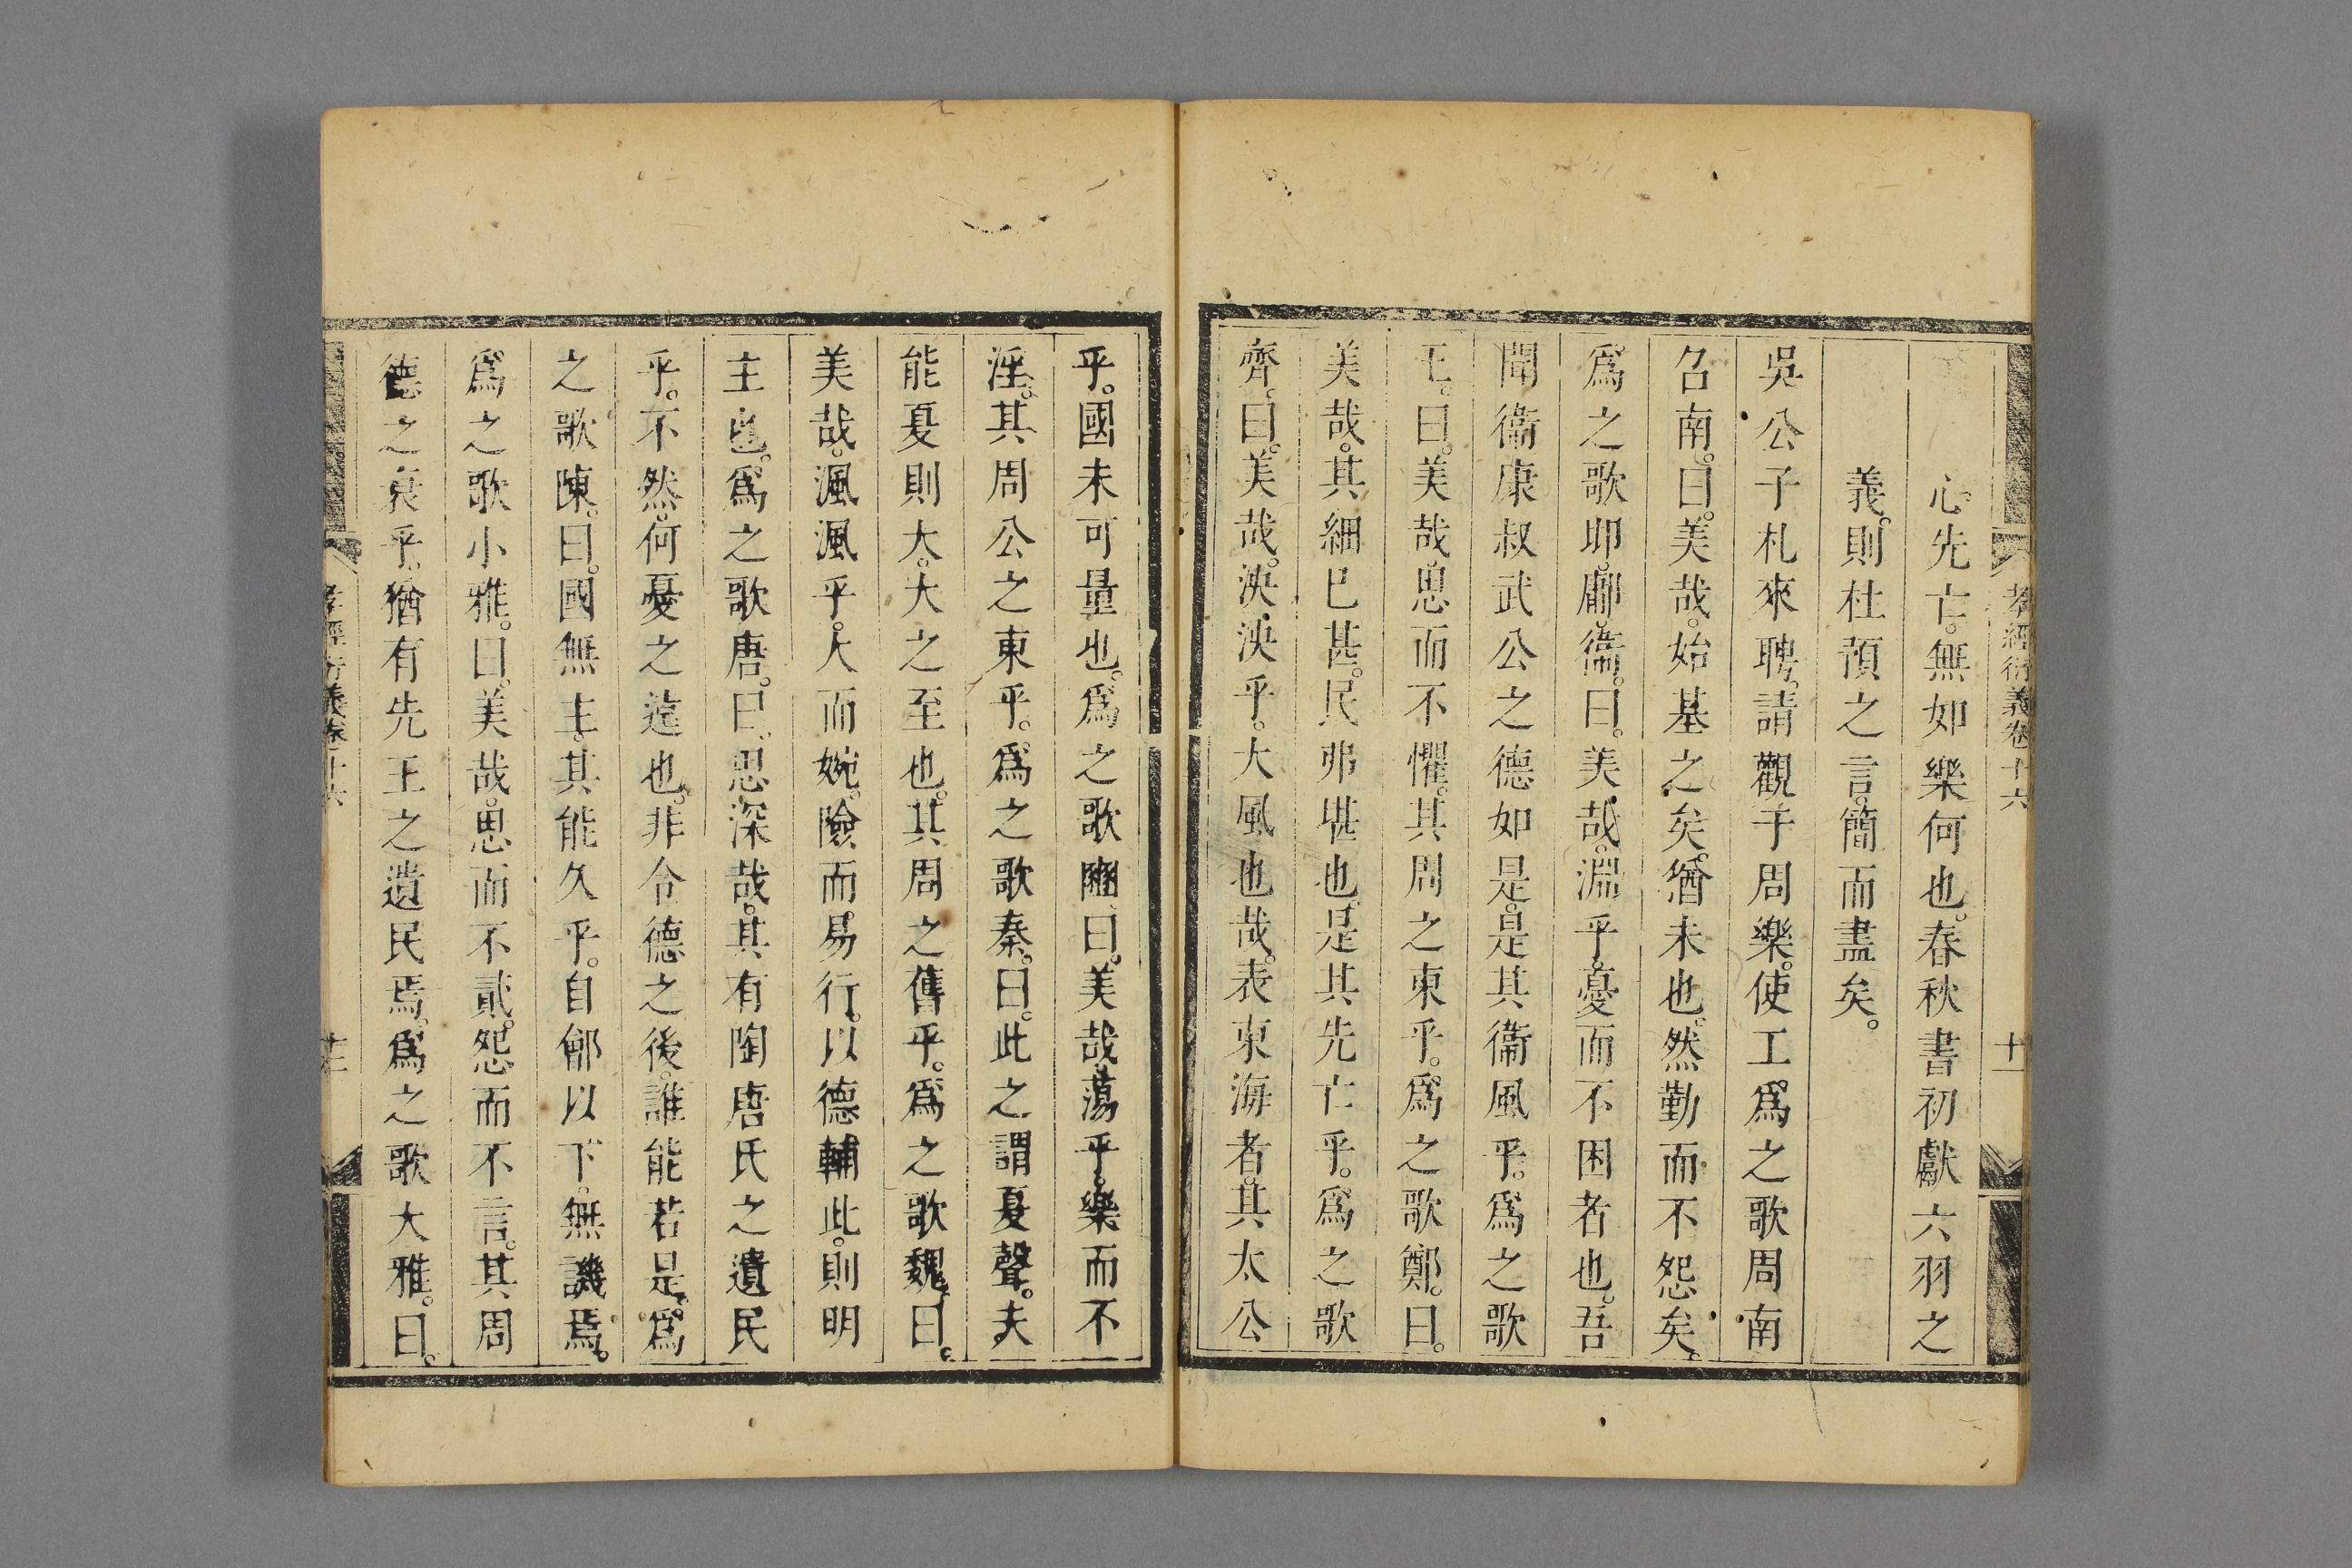 孝經衍義卷十六
十一
心。先亡。無如樂何也。春秋書初獻六羽之
義。則杜預之言。簡而盡矣。
吳公子札來聘。請觀于周樂。使工爲之歌周南
召南。曰。美哉。始基之矣。猶未也。然勤而不怨矣。
爲之歌邶。鄘。衞。曰。美哉。淵乎。憂而不困者也。吾
聞衞康叔武公之德如是。是其衞風乎。爲之歌
王。曰。美哉。思而不懼。其周之東乎。爲之歌鄭。曰。
美哉。其細已甚。民弗堪也。是其先亡乎。爲之歌
齊。曰。美哉。泱泱乎。大風也哉。表東海者。其太公
乎。國未可量也。爲之歌豳。曰。美哉。蕩乎。樂而不
淫。其周公之東乎。爲之歌秦。曰。此之謂夏聲。夫
能夏則大。大之至也。其周之舊乎。爲之歌魏。曰。
美哉。渢渢乎。大而婉。險而易行。以德輔此。則明
主也。爲之歌唐。曰。思深哉。其有陶唐氏之遺民
乎。不然。何憂之遠也。非令德之後。誰能若是。爲
之歌陳。曰。國無主。其能久乎。自鄶以下。無譏焉。
爲之歌小雅。曰。美哉。思而不貳。怨而不言。其周
德之衰乎。猶有先王之遺民焉。爲之歌大雅。曰。
孝經衍義卷十六